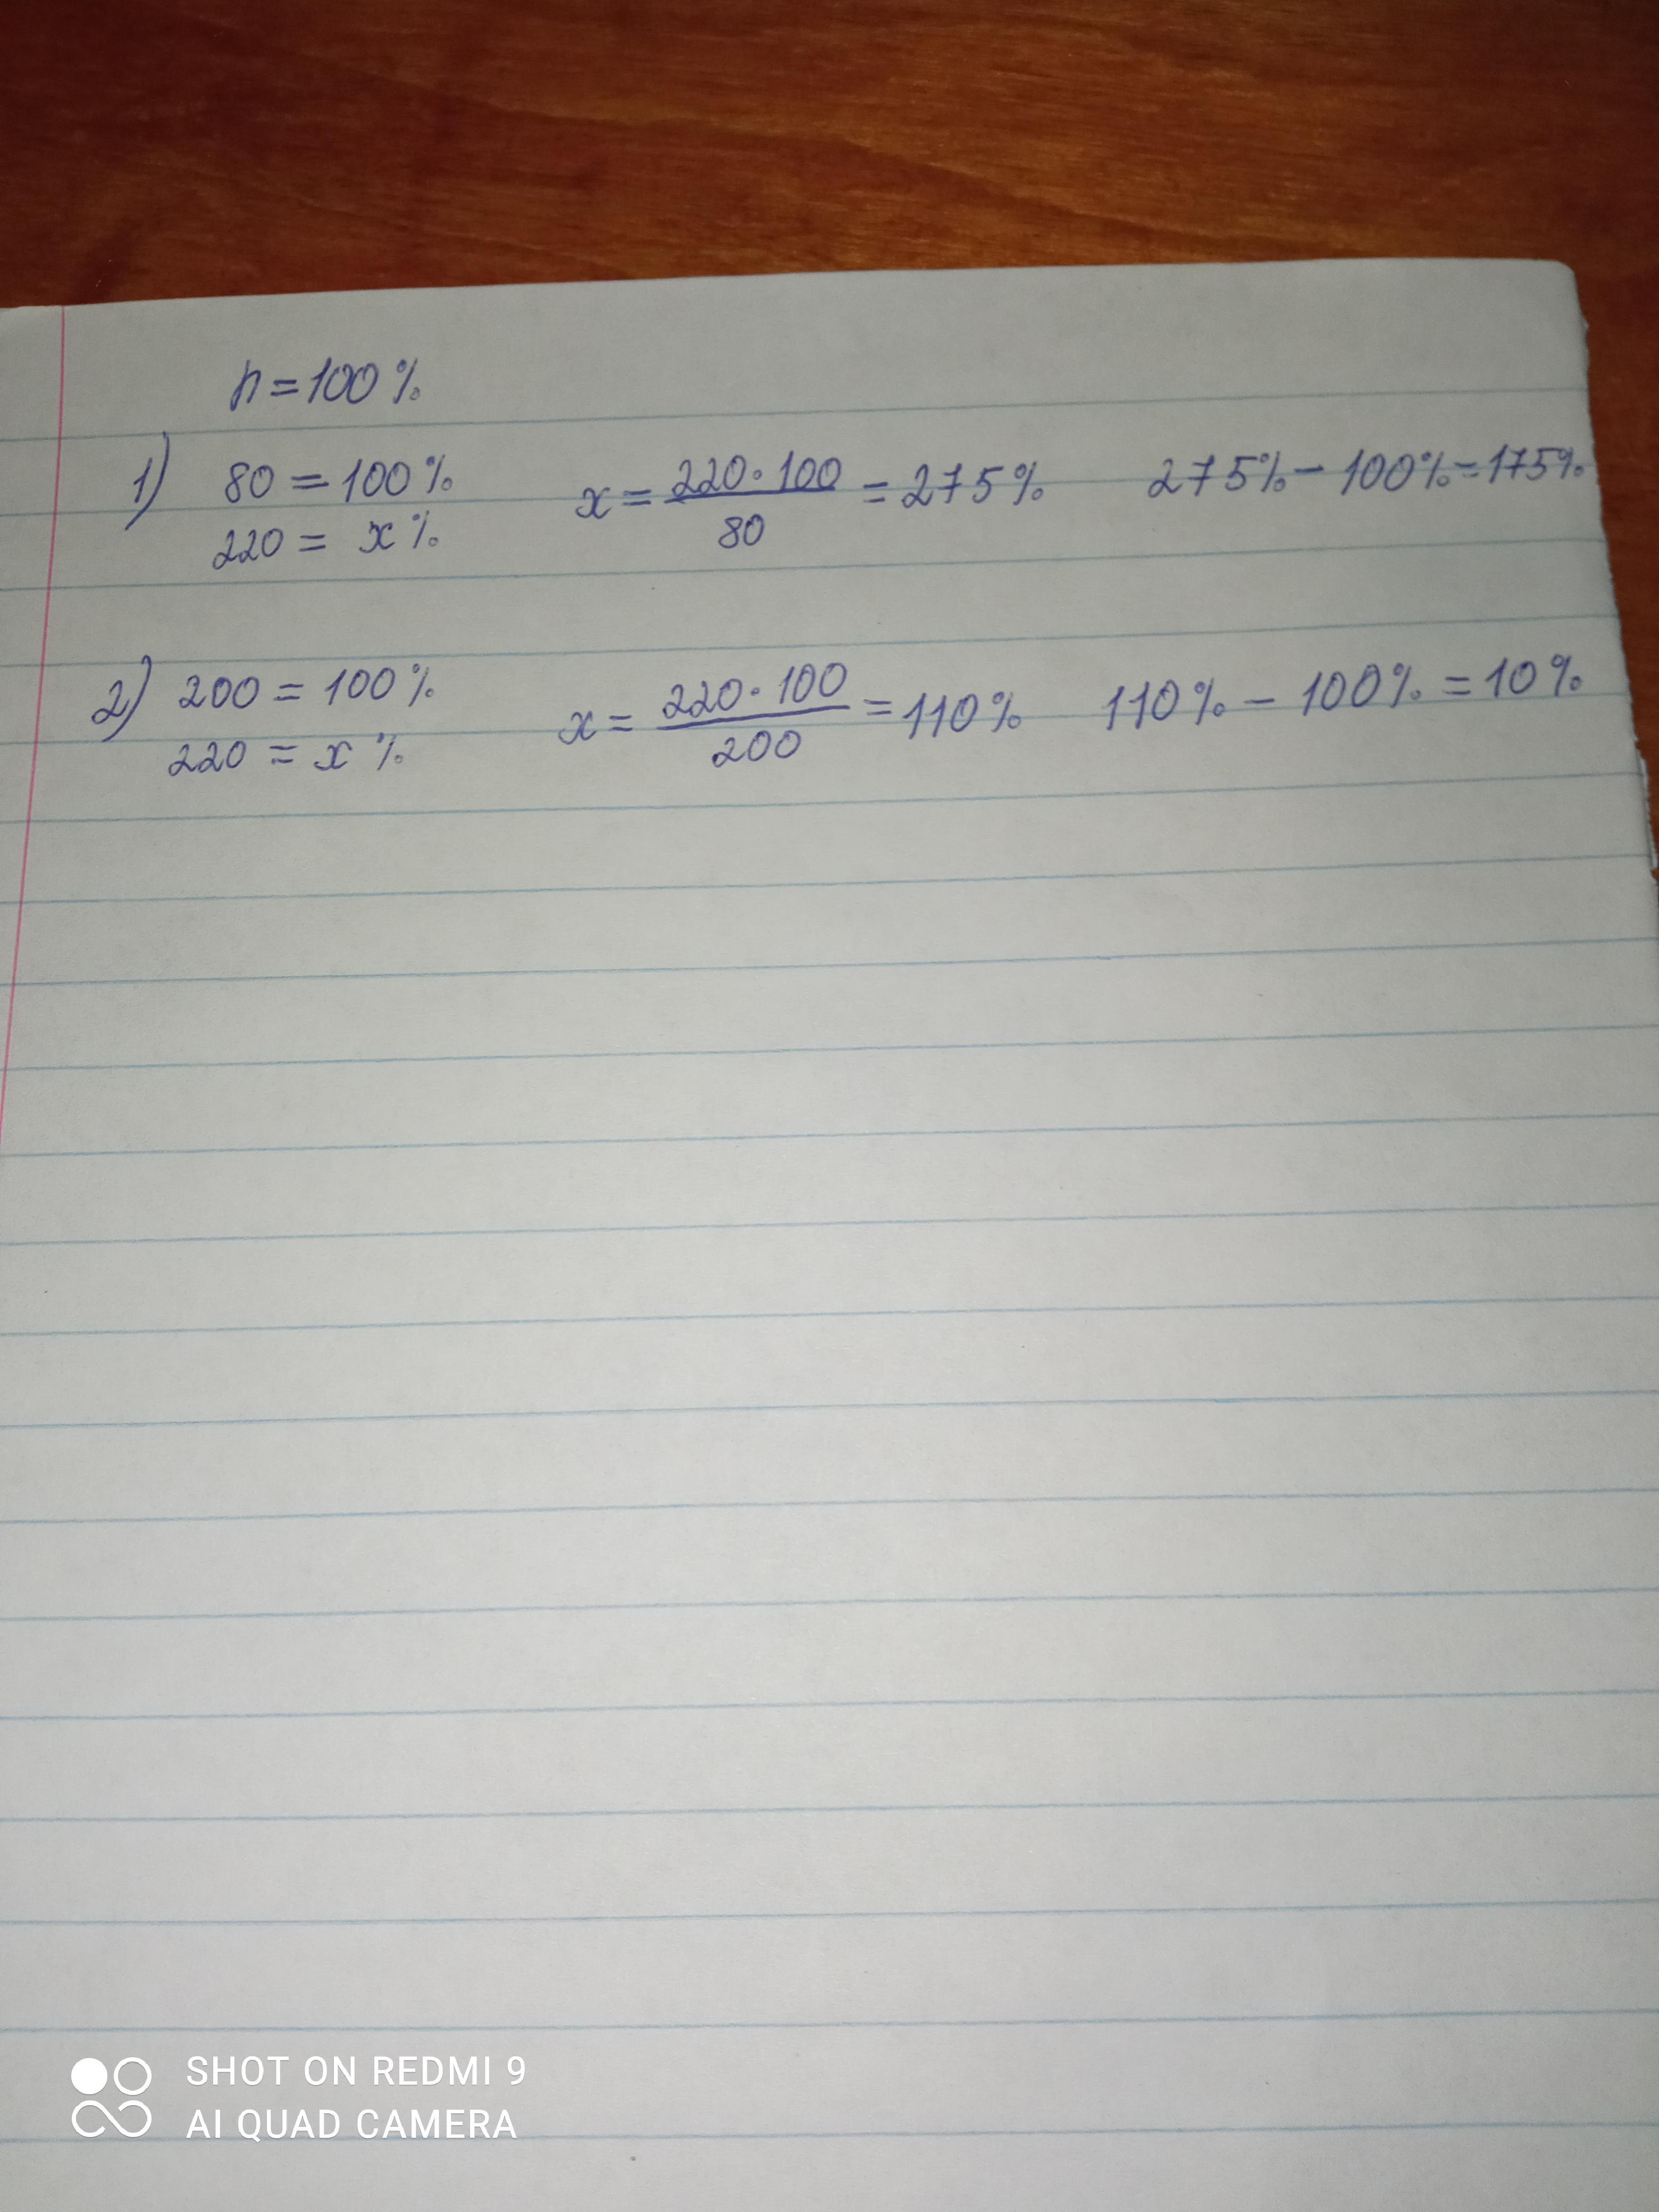 n = 100 %
1) 80 = 100 %
220 = x %
x = 220 · 100 / 80 = 275 %
275 % - 100 % = 175 %
2) 200 = 100 %
220 = x %
x = 220 · 100 / 200 = 110 %
110 % - 100 % = 10 %
SHOT ON REDMI 9
AI QUAD CAMERA